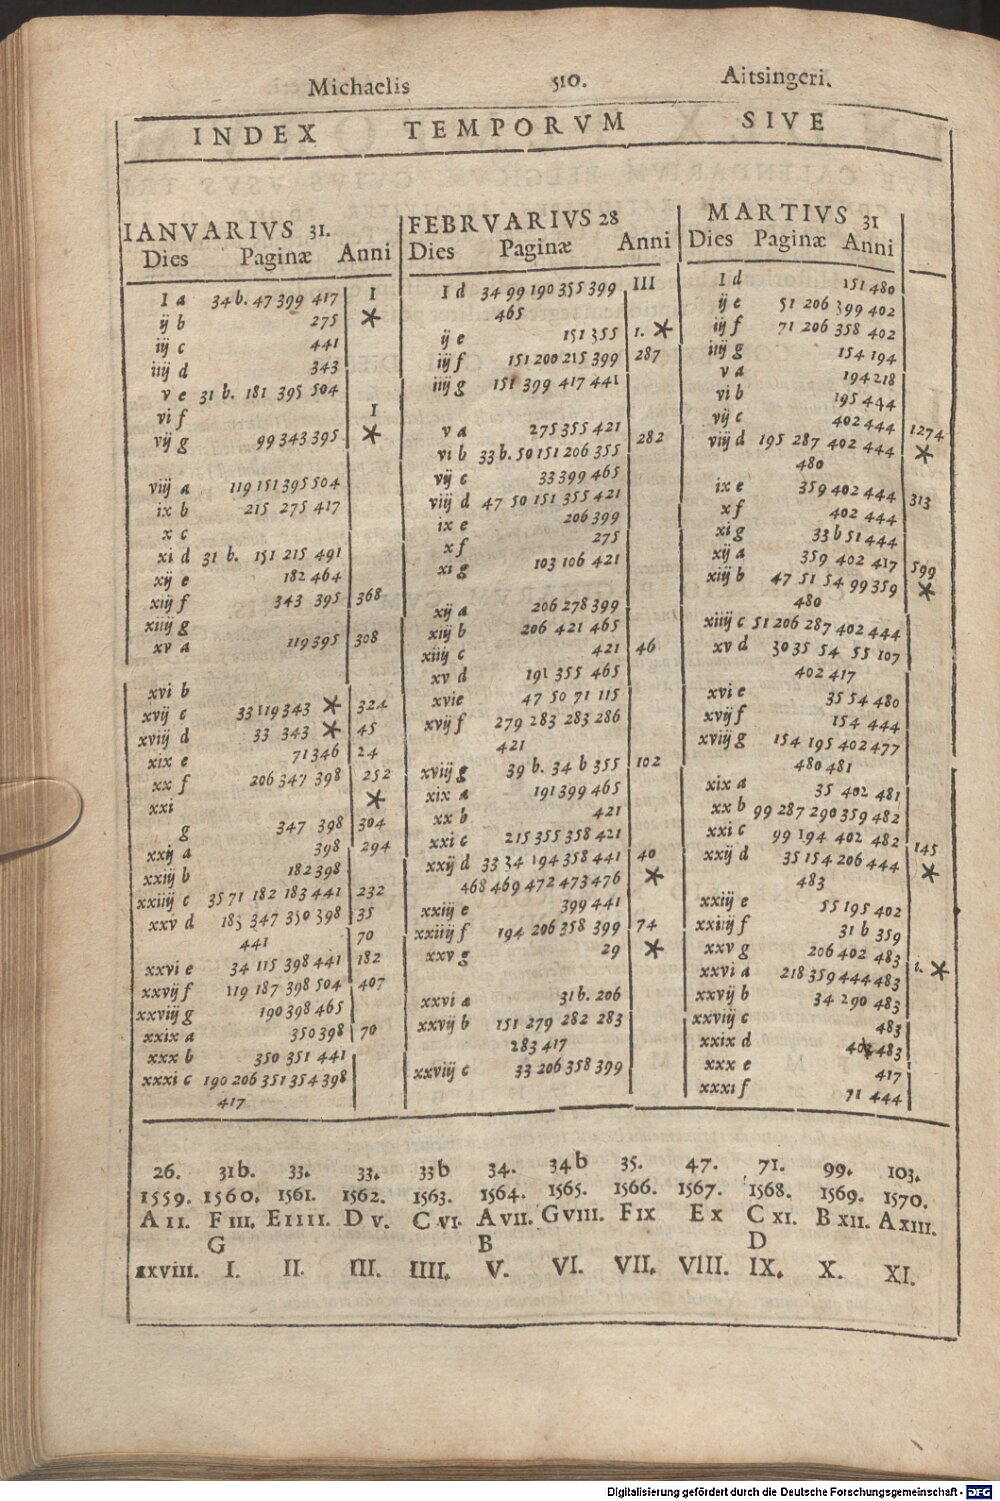 Michaelis 510. Aitsingeri.
INDEX TEMPORVM SIVE
IANVARIVS 31.
Dies Paginæ Anni
I a 34b. 47 399 417 I
ij b 275 *
iij c 441
iiij d 343
v e 31 b. 181 395 504
vi f I
vij g 99 343 395 *
viij a 119 151 395 504
ix b 215 275 417
x c
xi d 31 b. 151 215 491
xij e 182 464
xiij f 343 395 368
xiiij g
xv a 119 395 308
xvi b
xvij c 33 119 343 * 324
xviij d 33 343 * 45
xix e 71 346 24
xx f 206 347 398 252
xxi *
g 347 398 304
xxij a 398 294
xxiij b 182 398
xxiiij c 35 71 182 183 441 232
xxv d 183 347 350 398 35
441 70
xxvi e 34 115 398 441 182
xxvij f 119 187 398 504 407
xxviij g 190 398 465
xxix a 350 398 70
xxx b 350 351 441
xxxi c 190 206 351 354 398
417
FEBRVARIVS 28
Dies Paginæ Anni
I d 34 99 190 355 399 III
465
ij e 151 355 1. *
iij f 151 200 215 399 287
iiij g 151 399 417 441
v a 275 355 421
vi b 33 b. 50 151 206 355 282
vij c 33 399 465
viij d 47 50 151 355 421
ix e 206 399
x f 275
xi g 103 106 421
xij a 206 278 399
xiij b 206 421 465
xiiij c 421 46
xv d 191 355 465
xvi e 47 50 71 115
xvij f 279 283 283 286
421
xviij g 39 b. 34 b 355 102
xix a 191 399 465
xx b 421
xxi c 215 355 358 421
xxij d 33 34 194 358 441 40
468 469 472 473 476 *
xxiij e 399 441
xxiiij f 194 206 358 399 74
xxv g 29 *
xxvi a 31 b. 206
xxvij b 151 279 282 283
283 417
xxviij c 33 206 358 399
MARTIVS 31
Dies Paginæ Anni
I d 151 480
ij e 51 206 399 402
iij f 71 206 358 402
iiij g 154 194
v a 194 218
vi b 195 444
vij c 402 444 1274
viij d 195 287 402 444 *
480
ix e 359 402 444 313
x f 402 444
xi g 33 b 51 444
xij a 359 402 417 599
xiij b 47 51 54 99 359 *
480
xiiij c 51 206 287 402 444
xv d 30 35 54 55 107
402 417
xvi e 35 54 480
xvij f 154 444
xviij g 154 195 402 477
480 481
xix a 35 402 481
xx b 99 287 290 359 482
xxi c 99 194 402 482 145
xxij d 35 154 206 444 *
483
xxiij e 55 195 402
xxiiij f 31 b 359
xxv g 206 402 483 1. *
xxvi a 218 359 444 483
xxvij b 34 290 483
xxviij c 483
xxix d 483
xxx e 417
xxxi f 71 444
26. 31b. 33. 33. 33b 34. 34b 35. 47. 71. 99. 103.
1559. 1560. 1561. 1562. 1563. 1564. 1565. 1566. 1567. 1568. 1569. 1570.
A II. F III. E IIII. D V. C VI. A VII. G VIII. F IX E X C XI. B XII. A XIII.
G B D
xxviii. I. II. III. IIII. V. VI. VII. VIII. IX. X. XI.
Digitalisierung gefördert durch die Deutsche Forschungsgemeinschaft - DFG